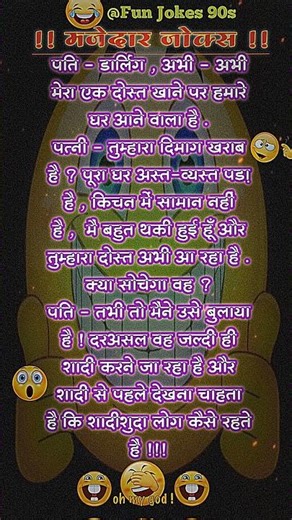 @Fun Jokes 90s
!! मजेदार जोक्स !!
पति - डार्लिग , अभी - अभी
मेरा एक दोस्त खाने पर हमारे
घर आने वाला है .
पत्नी - तुम्हारा दिमाग खराब
है ? पूरा घर अस्त-व्यस्त पडा़
है , किचन में सामान नहीं
है , मै बहुत थकी हुई हूँ और
तुम्हारा दोस्त अभी आ रहा है .
क्या सोचेगा वह ?
पति - तभी तो मैने उसे बुलाया
है ! दरअसल वह जल्दी ही
शादी करने जा रहा है और
शादी से पहले देखना चाहता
है कि शादीशुदा लोग कैसे रहते
है !!!
oh my god !